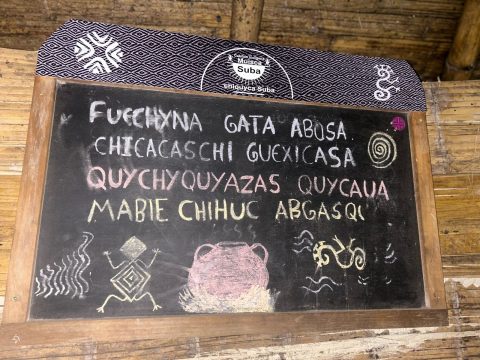 Muisca
Suba
shiquyca Suba
FUECHYNA GATA ABOSA
CHICACASCHI GUEXICASA
QUYCHYQUYAZAS QUYCAUA
MABIE CHIHUC ABGASQI